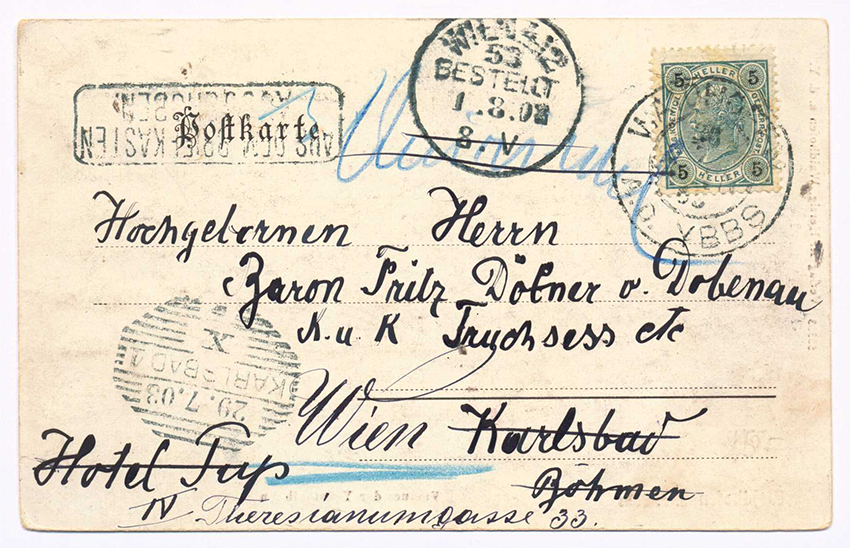 WIEN 4/2
53
BESTELLT
1.8.03
8.V
5 HELLER 5
5 HELLER 5
AUS DEM BRIEFKASTEN
AUSGEHOBEN
Postkarte
YBBS
Hochgebornen Herrn
Baron Fritz Döbner v. Dobenau
K. u K Truchsess etc
X
KARLSBAD 1
29.7.03
Wien Karlsbad
Hotel Pup
Böhmen
IV Theresianumgasse 33.